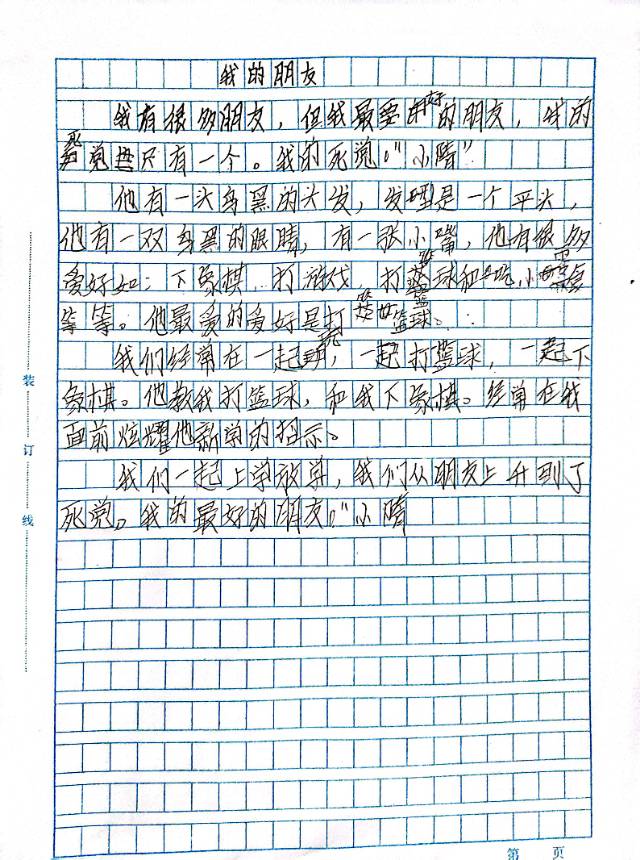 我的朋友
我有很多朋友，但我最要好的朋友，我的
死党只有一个。我的死党。"小晴"
他有一头乌黑的头发，发型是一个平头，
他有一双乌黑的眼睛，有一张小嘴，他有很多
爱好如：下象棋 打游戏，打篮球和吃小零食
等等。他最爱的爱好是打篮球。
我们经常在一起玩，一起打篮球，一起下
象棋。他教我打篮球，和我下象棋。经常在我
面前炫耀他新学的招示。
我们一起上学放学，我们从朋友上升到了
死党。我的最好的朋友。"小晴
装
订
线
第 页